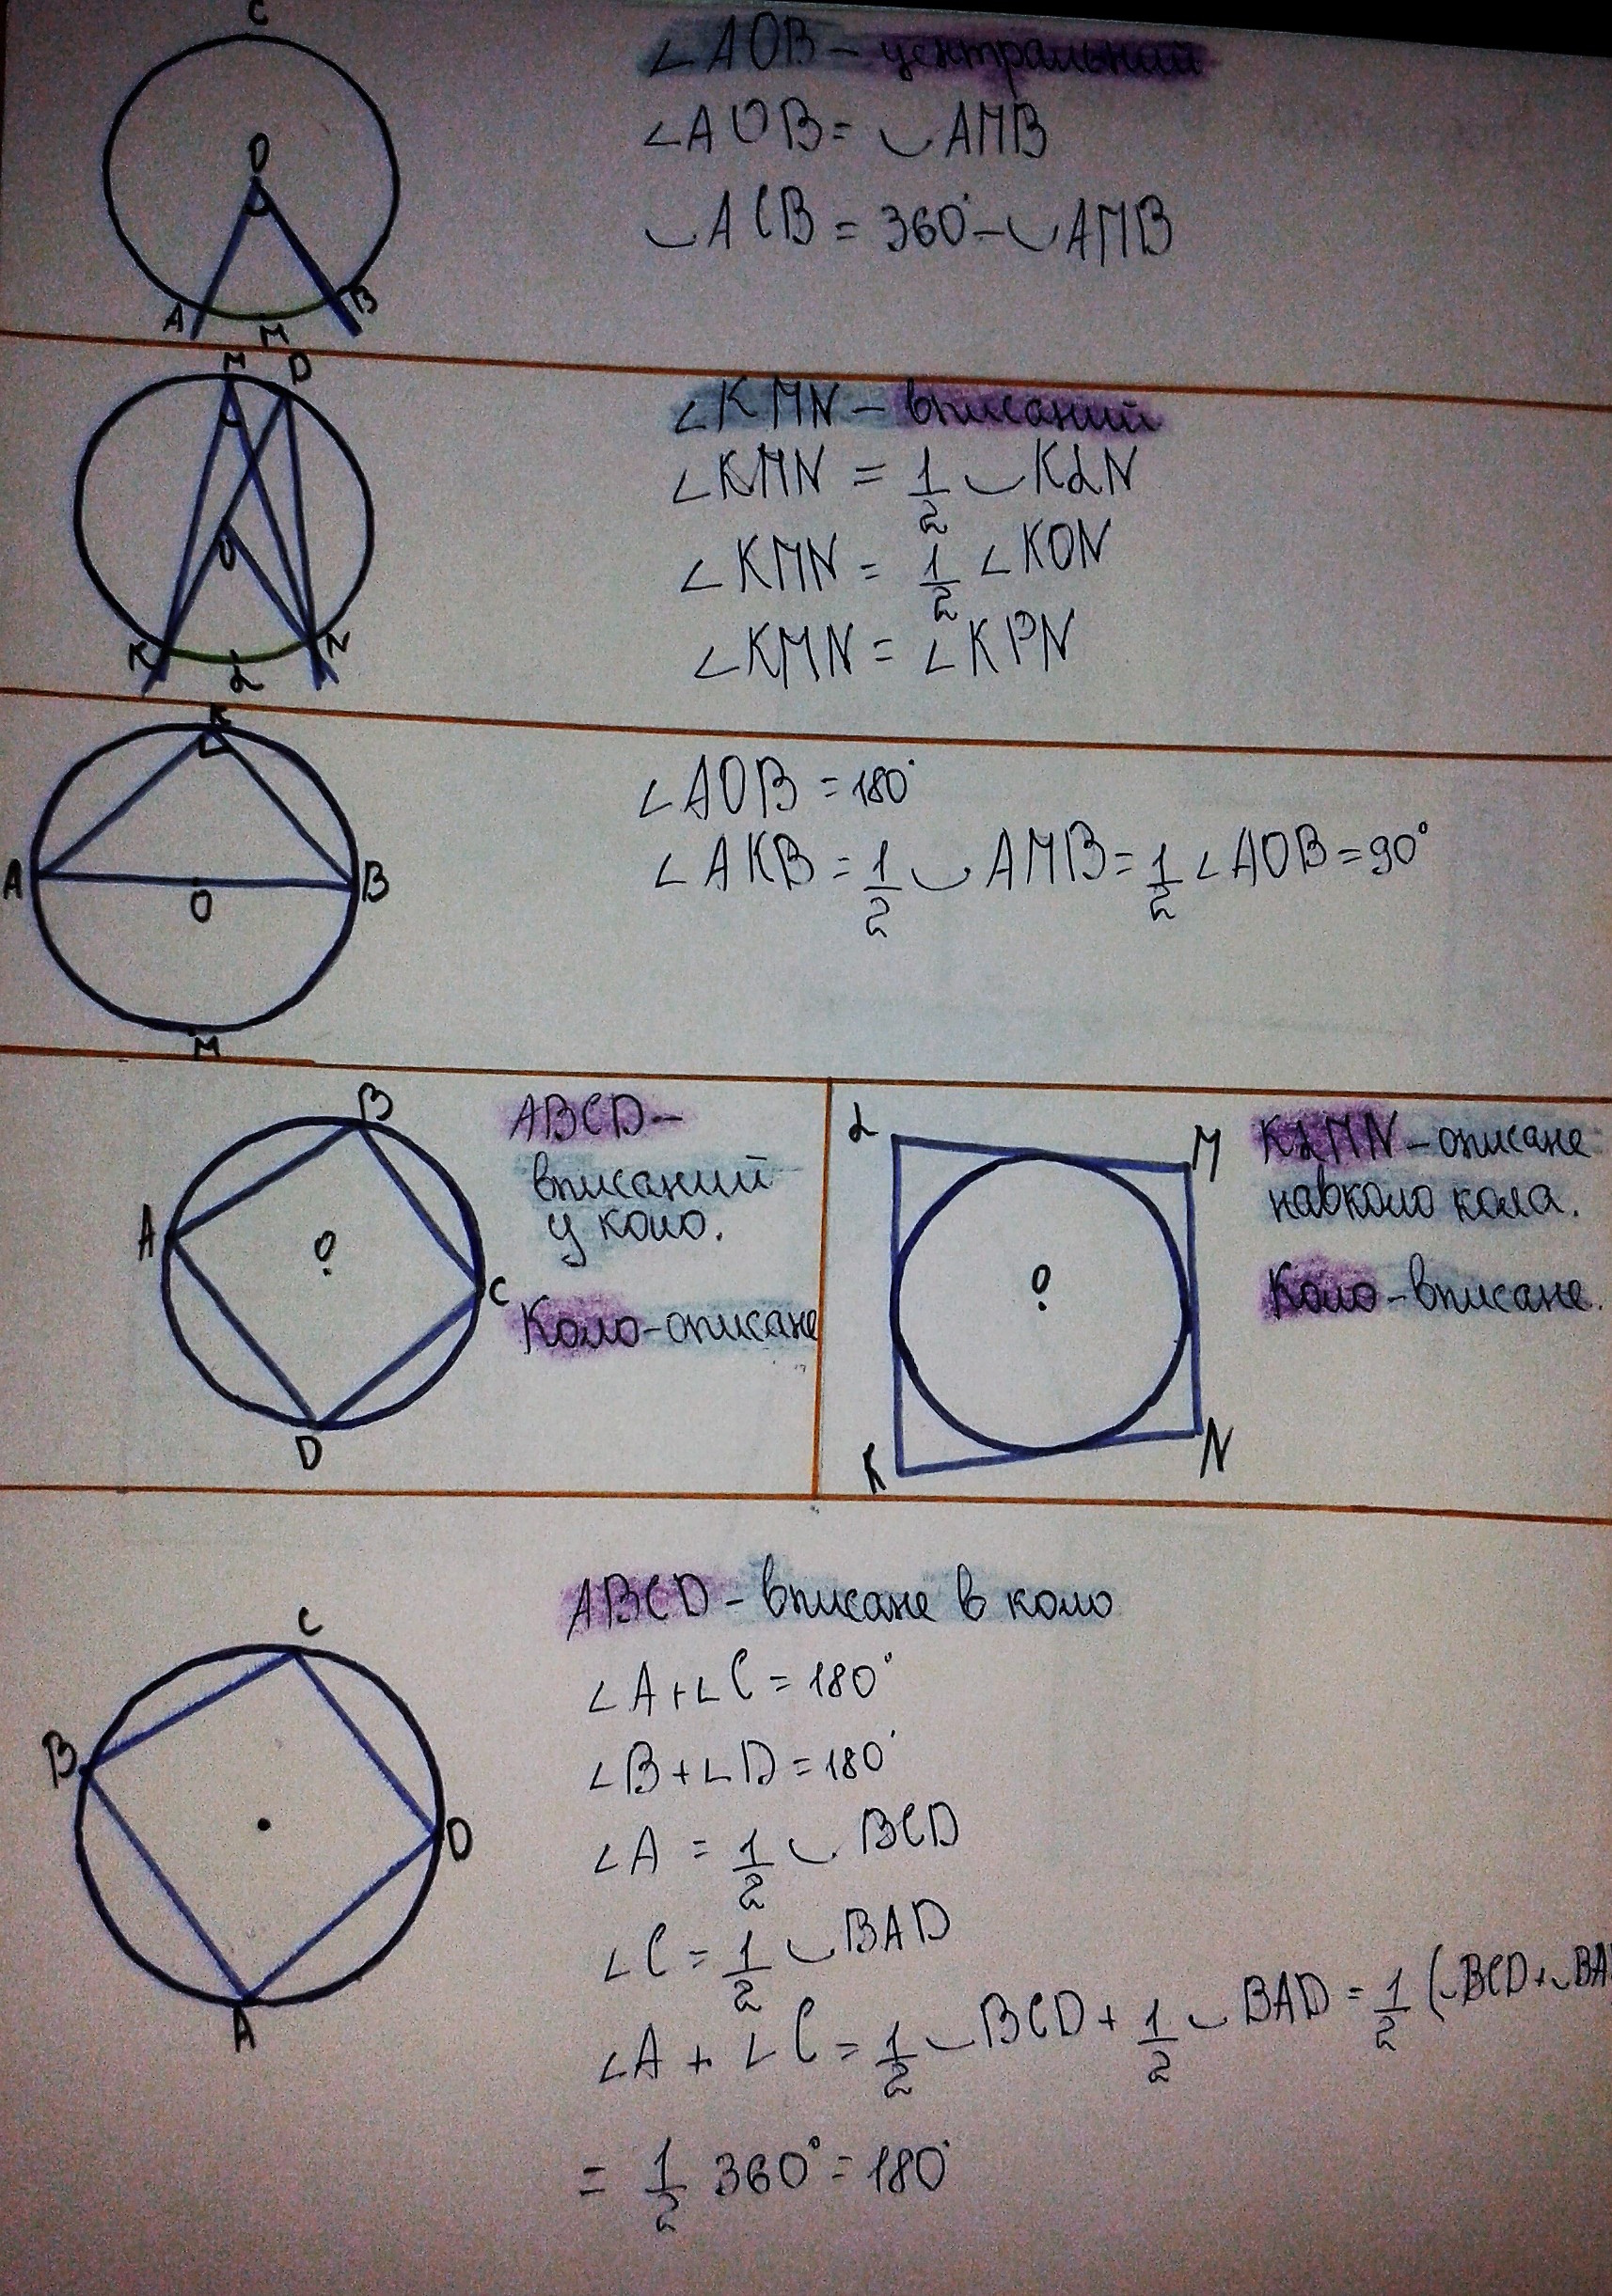 C
O
A
M
B
∠AOB – центральний
∠AOB = ◡AMB
◡ACB = 360° – ◡AMB
M
D
O
K
L
N
∠KMN – вписаний
∠KMN = 1/2 ◡KLN
∠KMN = 1/2 ∠KON
∠KMN = ∠KPN
K
A
O
B
M
∠AOB = 180°
∠AKB = 1/2 ◡AMB = 1/2 ∠AOB = 90°
B
A
O
C
D
ABCD –
вписаний
у коло.
Коло – описане
L
M
O
K
N
KLMN – описане
навколо кола.
Коло – вписане.
C
B
D
A
ABCD – вписане в коло
∠A + ∠C = 180°
∠B + ∠D = 180°
∠A = 1/2 ◡BCD
∠C = 1/2 ◡BAD
∠A + ∠C = 1/2 ◡BCD + 1/2 ◡BAD = 1/2 (◡BCD + ◡BA
= 1/2 360° = 180°